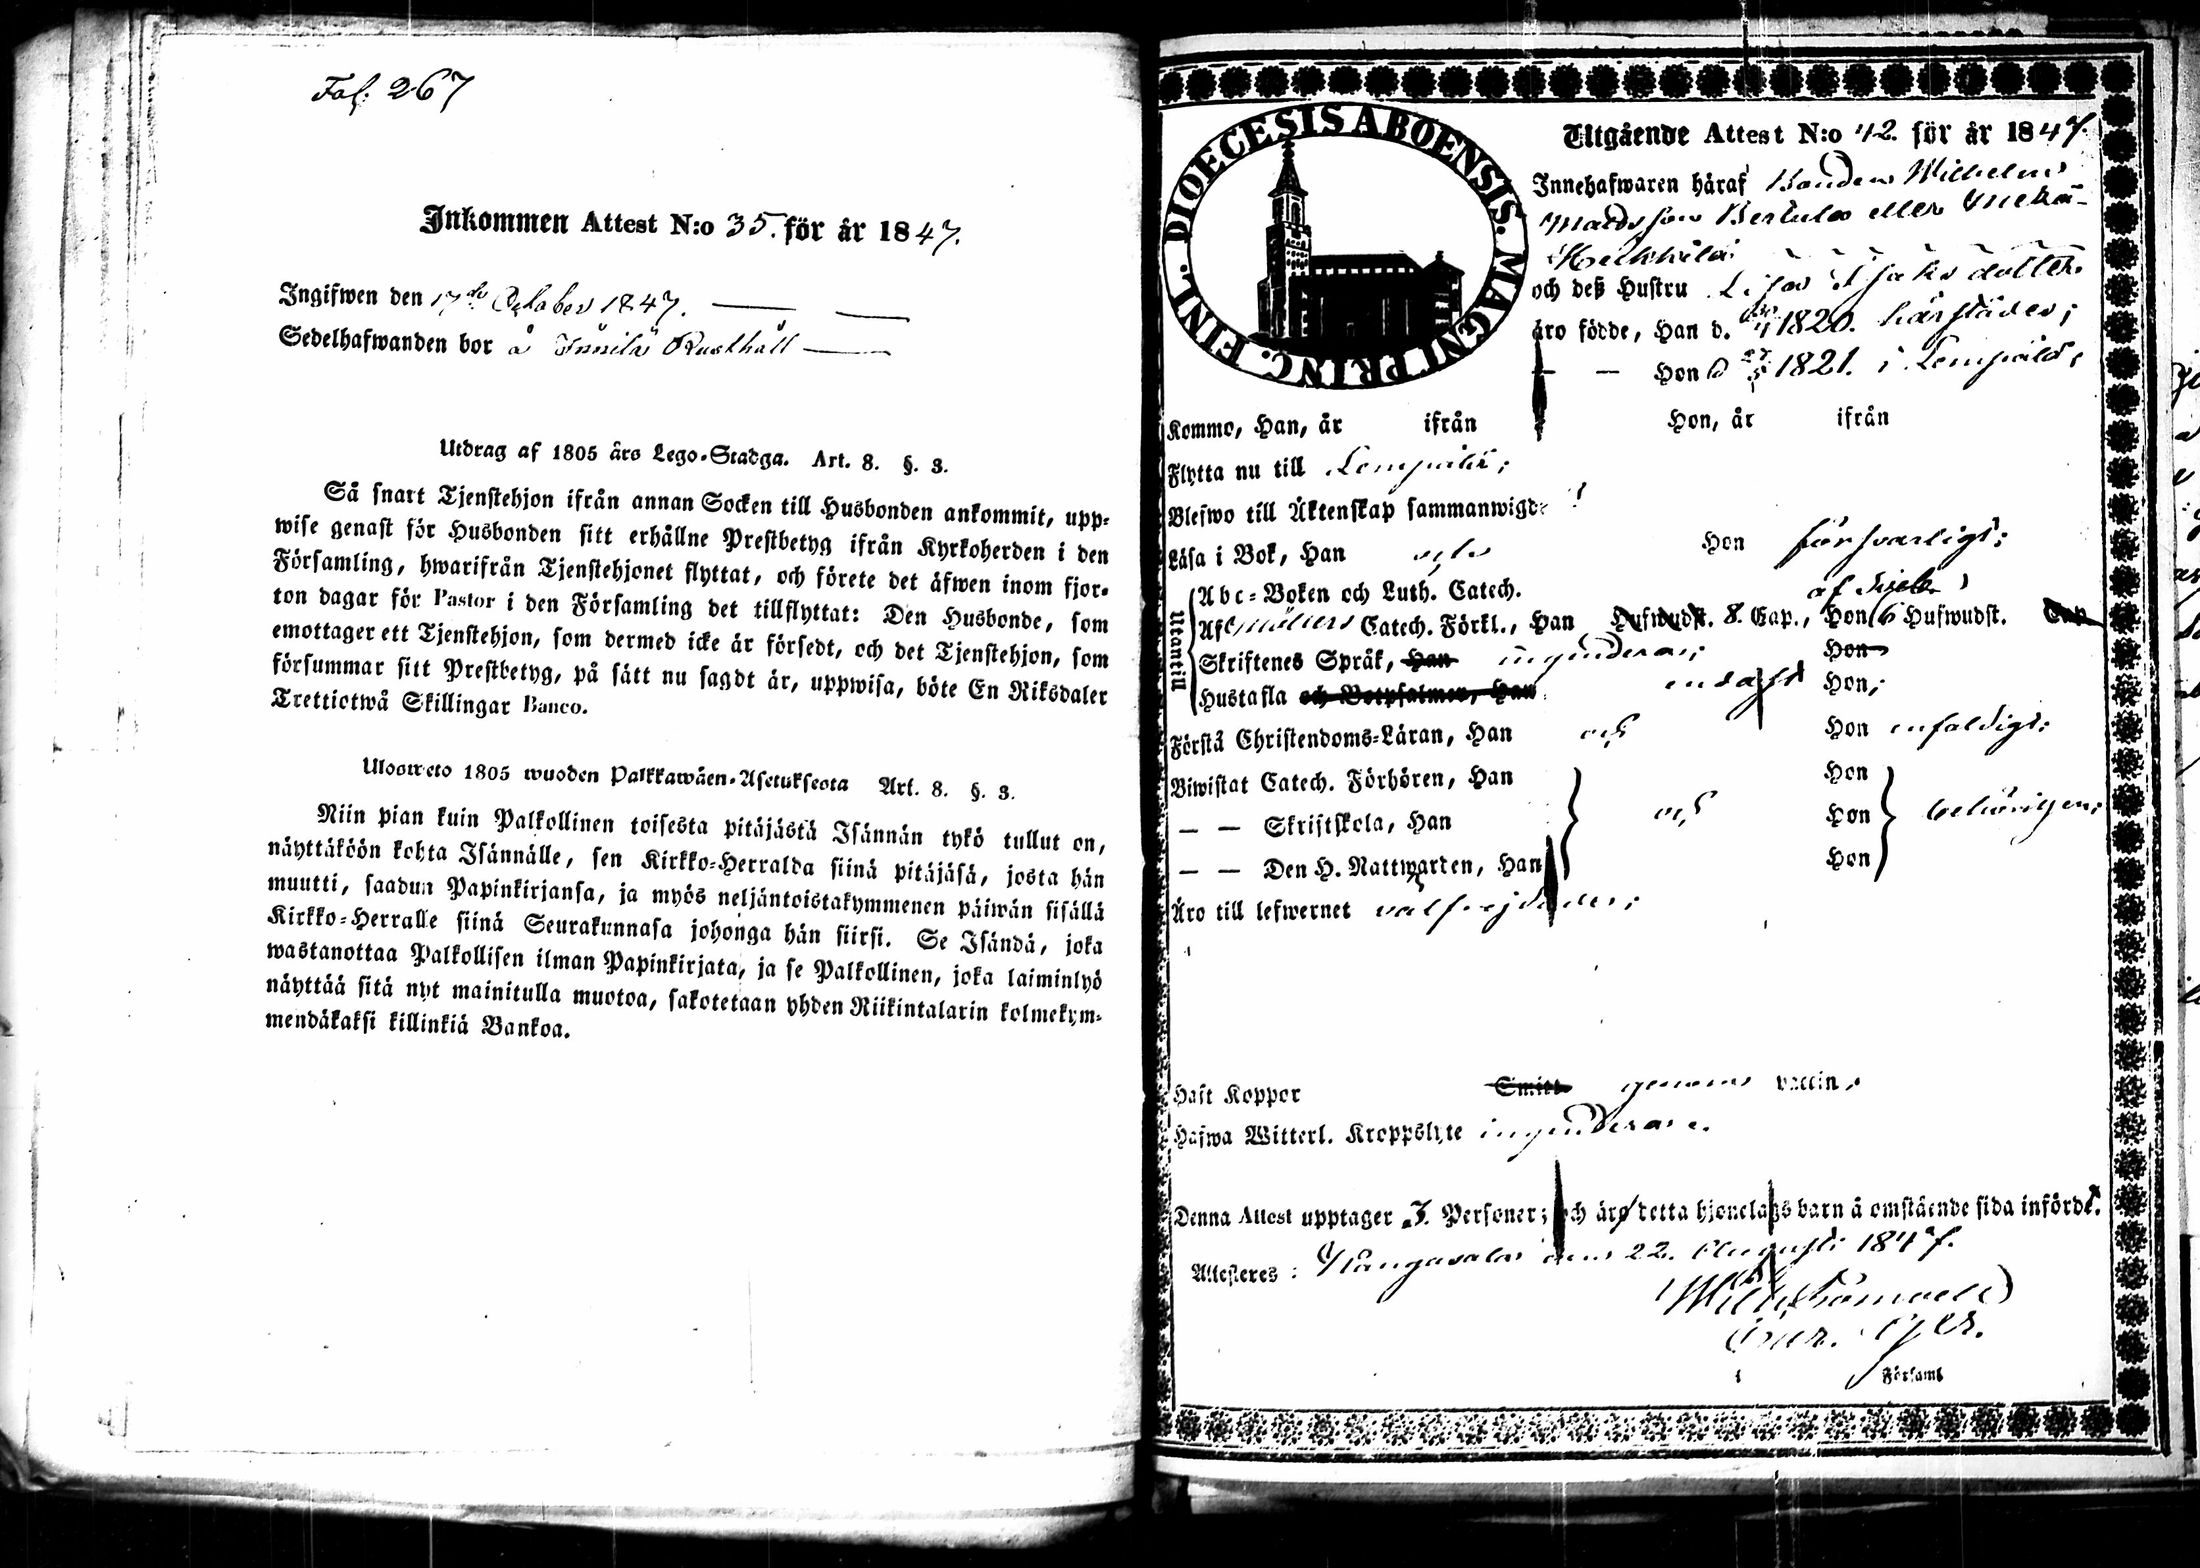 Fol. 267
Inkommen Attest N:o 35. för år 1847.
Ingifwen den 17de October 1847.
Sedelhafwanden bor å Innilä Rusthåll
Utdrag af 1805 års Lego-Stadga. Art. 8. §. 3.
Så snart Tjenstehjon ifrån annan Socken till Husbonden ankommit, upp-
wise genast för Husbonden sitt erhållne Prestbetyg ifrån Kyrkoherden i den
Församling, hwarifrån Tjenstehjonet flyttat, och förete det äfwen inom fjor-
ton dagar för Pastor i den Församling det tillflyttat: Den Husbonde, som
emottager ett Tjenstehjon, som dermed icke är försedt, och det Tjenstehjon, som
försummar sitt Prestbetyg, på sätt nu sagdt är, uppwisa, böte En Riksdaler
Trettiotwå Skillingar Banco.
Ulosweto 1805 wuoden Palkkawäen-Asetuksesta Art. 8. §. 3.
Niin pian kuin Palkollinen toisesta pitäjästä Isännän tykö tullut on,
näyttäköön kohta Isännälle, sen Kirkko-Herralda siinä pitäjäsä, josta hän
muutti, saadun Papinkirjansa, ja myös neljäntoistakymmenen päiwän sisällä
Kirkko-Herralle siinä Seurakunnasa johonga hän siirsi. Se Isändä, joka
wastanottaa Palkollisen ilman Papinkirjata, ja se Palkollinen, joka laiminlyö
näyttää sitä nyt mainitulla muotoa, sakotetaan yhden Riikintalarin kolmekym-
mendäkaksi killinkiä Bankoa.
DIOECESIS ABOENSIS. MAGNI PRINC. FINL.
Utgående Attest N:o 42. för år 1847.
Innehafwaren häraf Bonden Wilhelm
Matdsson Bertula eller
Heikkilä
och deß Hustru Lisa Isaksdotter
äro födde, Han d. 1820. härstädes;
— — Hon d 1821. i Lempälä;
Kommo, Han, år ifrån Hon, år ifrån
Flytta nu till Lempälä;
Blefwo till Äktenskap sammanwigde
Läsa i Bok, Han och Hon försvarligt;
Utantill
Abc-Boken och Luth. Catech.
af Swebe
Af Möllers Catech. Förkl., Han Hufwudst. 8. Cap., Hon 6 Hufwudst. Cap
Skriftenes Språk, Han ingendera; Hon
Hustafla och Botpsalmer, Han endast Hon;
Förstå Christendoms-Läran, Han och Hon enfaldigt;
Biwistat Catech. Förhören, Han Hon
— — Skriftskola, Han och Hon behörigen;
— — Den H. Nattwarden, Han Hon
Äro till lefwernet välfrejdade;
Haft Koppor Smitt genom vaccin;
Hafwa Witterl. Kroppslyte ingendera.
Denna Attest upptager Personer; och äro detta hjonelags barn å omstående sida införde.
Attesteres: Kangasala den 22. Augusti 1847.
Wilh. Strömwell
i Församl